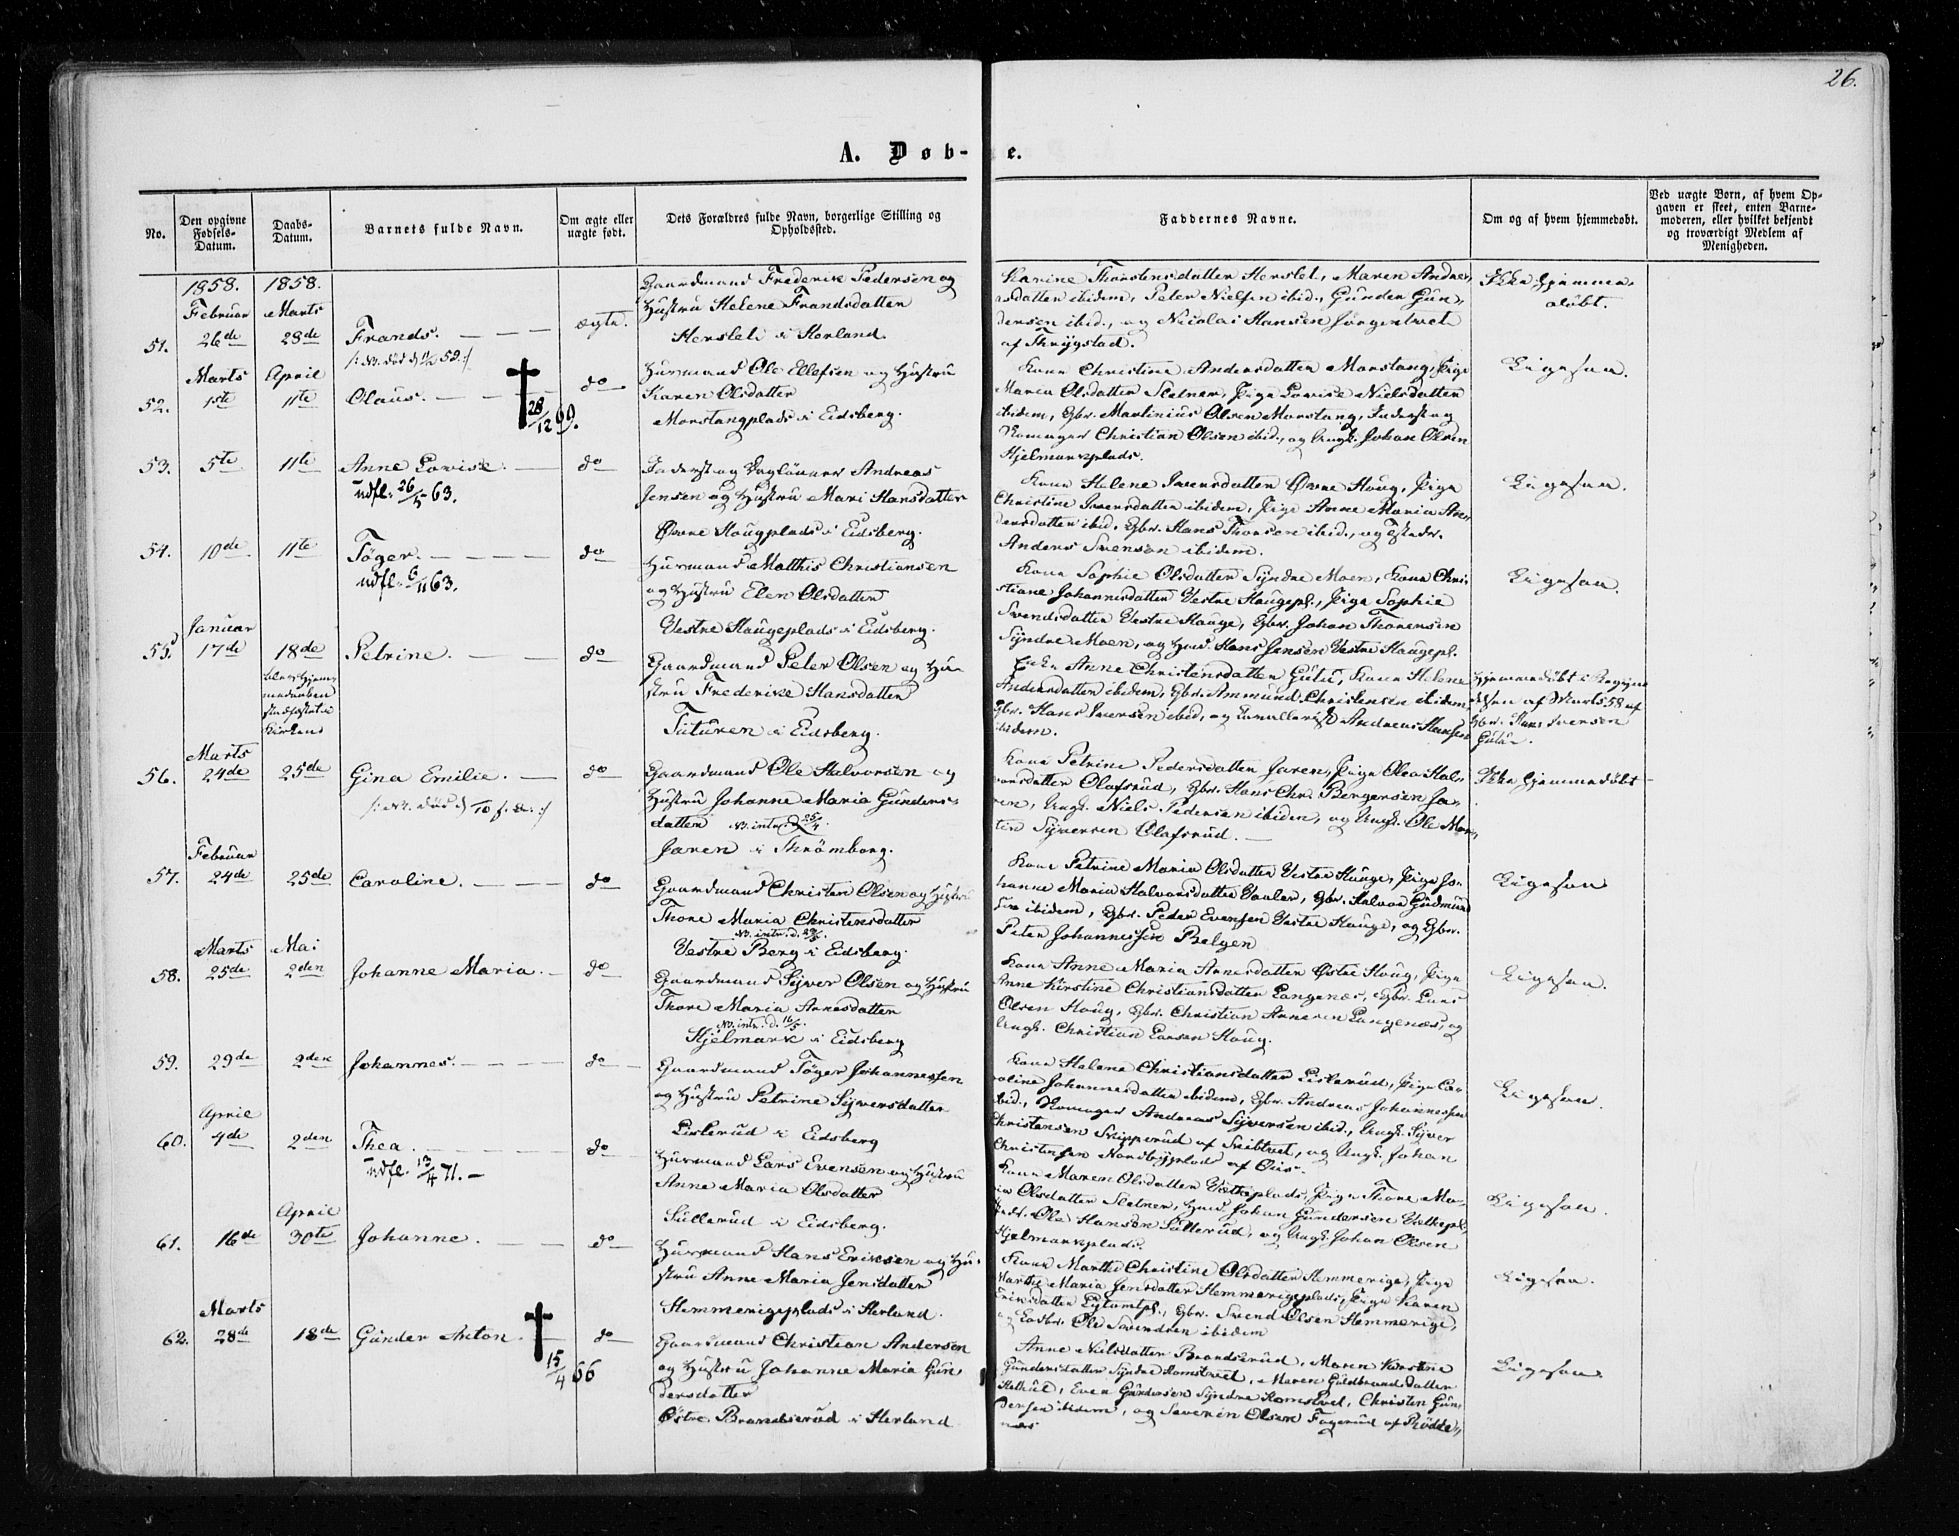 26.
A. Døb- e.
No.
Den opgivne Fødsels-Datum.
Daabs-Datum.
Barnets fulde Navn.
Om ægte eller uægte født.
Dets Forældres fulde Navn, borgerlige Stilling og Opholdssted.
Faddernes Navne.
Om og af hvem hjemmedøbt.
Ved uægte Børn, af hvem Opgaven er skeet, enten Barnemoderen, eller hvilket bekjendt og troværdigt Medlem af Menigheden.
1858. 1858.
Februar Marts
51. 26de 28de Frands. ægte.
Gaardmand Frederik Pedersen og
Hustru Helene Frandsdatter
Herslet i Herland
Karine Thorstensdatter Herslet, Maren Andrea
datter ibidem, Peter Nielsen ibid., Gunder Gun
dersen ibid., og Nicolai Hansen
af Thrygstad.
Ikke hjemme
døbt.
Marts April
52. 1ste 11te Olaus. do
28/12 99.
Huusmand Ole Ellefsen og Hustru
Karen Olsdatter
Morstangplads i Eidsberg.
Kone Christine Andersdatter Morstang, Pige
Maria Olsdatter Sletner, Pige Lovise Nielsdatter
ibidem, Gbr. Martinius Olsen Morstang, Inderst og
Skomager Christian Olsen ibid., og Ungk. Johan Olsen
Hjelmarkplads.
Ligesaa.
53. 5te 11te Anne Lovise. do
udfl. 26/5 63.
Inderst og Dagløner Andreas
Jensen og Hustru Mari Hansdatter
Øvre Hougplads i Eidsberg.
Kone Helene Iversdatter Øvre Houg, Pige
Christine Iversdatter ibidem, Pige Anne Maria An
dersdatter ibid., Gbr. Hans Thorsen ibid., og
Anders Svensen ibidem.
Ligesaa.
54. 10de 11te Töger. do
udfl. 6/11 63.
Huusmand Matthis Christiansen
og Hustru Elen Olsdatter
Vestre Haugeplads i Eidsberg.
Kone Sophie Olsdatter Syndre Moen, Kone Chri
stiane Johannesdatter Vestre Haugepl., Pige Sophie
Svendsdatter Vestre Hauge, Gbr. Johan Thorersen
Syndre Moen, og Huusm. Hans Jensen Vestre Haugepl.
Ligesaa.
Januar
55. 17de 18de Petrine. do
Gaardmand Peter Olsen og Hu
stru Frederike Hansdatter
Tuturen i Eidsberg.
Enke Anne Christensdatter Gulu, Kone Helene
Andersdatter ibidem, Gbr. Ammund Christensen ibidem,
Gbr. Hans Iversen ibid., og Andreas Hansen
ibidem.
Hjemmedøbt i Begyn
delsen af Marts 58 af
Gbr. Hans Iversen
Gulu.
Marts
56. 24de 25de Gina Emilie. do
Gaardmand Ole Halvorsen og
Hustru Johanne Maria Gunders
datter
Jaren i Thrømborg.
Kone Petrine Pedersdatter Jaren, Pige Olea Hal
vorsdatter Olafsrud, Gbr. Hans Chr. Bergersen Ja
ren, Ungk. Niels Pedersen ibidem, og Ungk. Ole Mor
ten Syversen Olafsrud.
Ikke hjemmedøbt
Februar
57. 24de 25de Caroline. do
Gaardmand Christen Olsen og Hustru
Thore Maria Christensdatter
NB. intr. d.
Vestre Berg i Eidsberg.
Kone Petrine Maria Olsdatter Vestre Hauge, Pige Jo
hanne Maria Halvorsdatter Vauler, Gbr. Halvor Gudmund
sen ibidem, Gbr. Peder Evensen Vestre Hauge, og Gbr.
Peter Johannessen Belgen
Ligesaa
Marts Mai
58. 25de 2den Johanne Maria. do
Gaardmand Syver Olsen og Hustru
Thore Maria Arnesdatter
NB. intr. d. 16/5.
Hjelmark i Eidsberg
Kone Anne Maria Arnesdatter Østre Houg, Pige
Anne Kirstine Christiansdatter Langenæs, Gbr. Lars
Olsen Houg, Gbr. Christian Arnesen Langenæs, og
Ungk. Christian Larsen Houg.
Ligesaa.
59. 29de 2den Johannes. do
Gaardmand Töger Johannessen
og Hustru Petrine Syversdatter
Lislerud i Eidsberg
Kone Helene Christiansdatter Lislerud, Pige Ca
roline Johannesdatter ibidem, Gbr. Andreas Johannessen
ibid., Skomager Andreas Syversen ibid., Ungk. Syver
Christensen Skipperud af og Ungk. Johan
Christensen Nordbyplads af
Ligesaa.
April
60. 4de 2den Thea. do
udfl. 13/4 71.
Huusmand Lars Evensen og Hustru
Anne Maria Olsdatter
Sullerud i Eidsberg.
Kone Maren Olsdatter Vetteplads, Pige Thore Ma
ria Olsdatter Sletner, Huusm. Johan Gundersen Vettepl.,
Ole Hansen Sullerud, og Ungk. Johan Olsen
Hjelmarkplads.
Ligesaa.
April
61. 16de 30te Johanne. do
Huusmand Hans Eriksen og Hu
stru Anne Maria Jensdatter
Hemmerigeplads i Herland.
Kone Marthe Christine Olsdatter Hemmerige, Pige
Marthe Maria Jensdatter Hemmerigeplads, Pige Karen
Eriksdatter Gbr. Svend Olsen Hemmerige,
og Ole Svendsen ibidem
Ligesaa.
Marts
62. 28de 18de Gunder Anton. do
15/4 66
Gaardmand Christian Andersen
og Hustru Johanne Maria Gun
dersdatter
Østre Brandserud i Herland
Anne Nielsdatter Brandserud, Maren Kirstine
Gundersdatter Syndre Homstvet, Maren Guldbrandsdatter
Even Gundersen Syndre Homstvet, Christen Gun
dersen ibidem, og Severin Olsen Fagerud af Rødde
næs
Ligesaa.